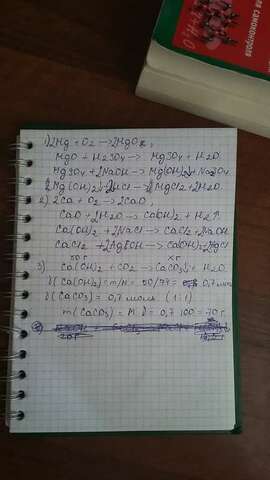 я самоконтроля
1) 2Mg + O2 → 2MgO,
MgO + H2SO4 → MgSO4 + H2O.
MgSO4 + 2NaOH → Mg(OH)2↓ + Na2SO4
Mg(OH)2↓ + 2HCl → MgCl2 + 2H2O.
2) 2Ca + O2 → 2CaO,
CaO + 2H2O → Ca(OH)2 + H2↑
Ca(OH)2 + 2NaCl → CaCl2 + 2NaOH
CaCl2 + 2AgOH → Ca(OH)2 + 2AgCl
50г xг
3) Ca(OH)2 + CO2 → CaCO3↓ + H2O.
ν(Ca(OH)2) = m/M = 50/74 = 0,7 моль
ν(CaCO3) = 0,7 моль (1:1)
m(CaCO3) = M·ν = 0,7·100 = 70 г.